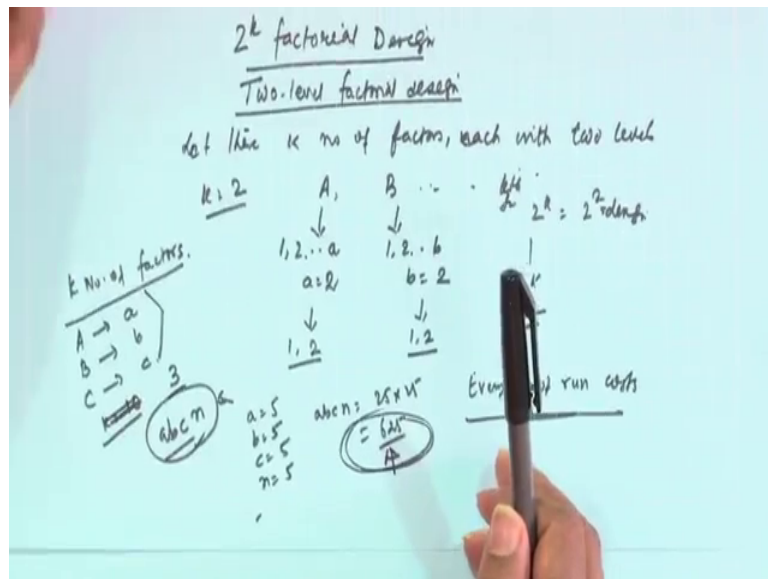 2^k factorial Design
Two-level factorial design
Let there k no of factors, each with two levels
k = 2 A, B ... kth
2^k = 2^2 design
1, 2 .. a 1, 2 .. b
a = 2 b = 2
1, 2 1, 2
k No. of factors.
A → a
B → b
C → c
3
abcn
a = 5
b = 5
c = 5
n = 5
abcn = 25 x 25
= 625
Every run costs